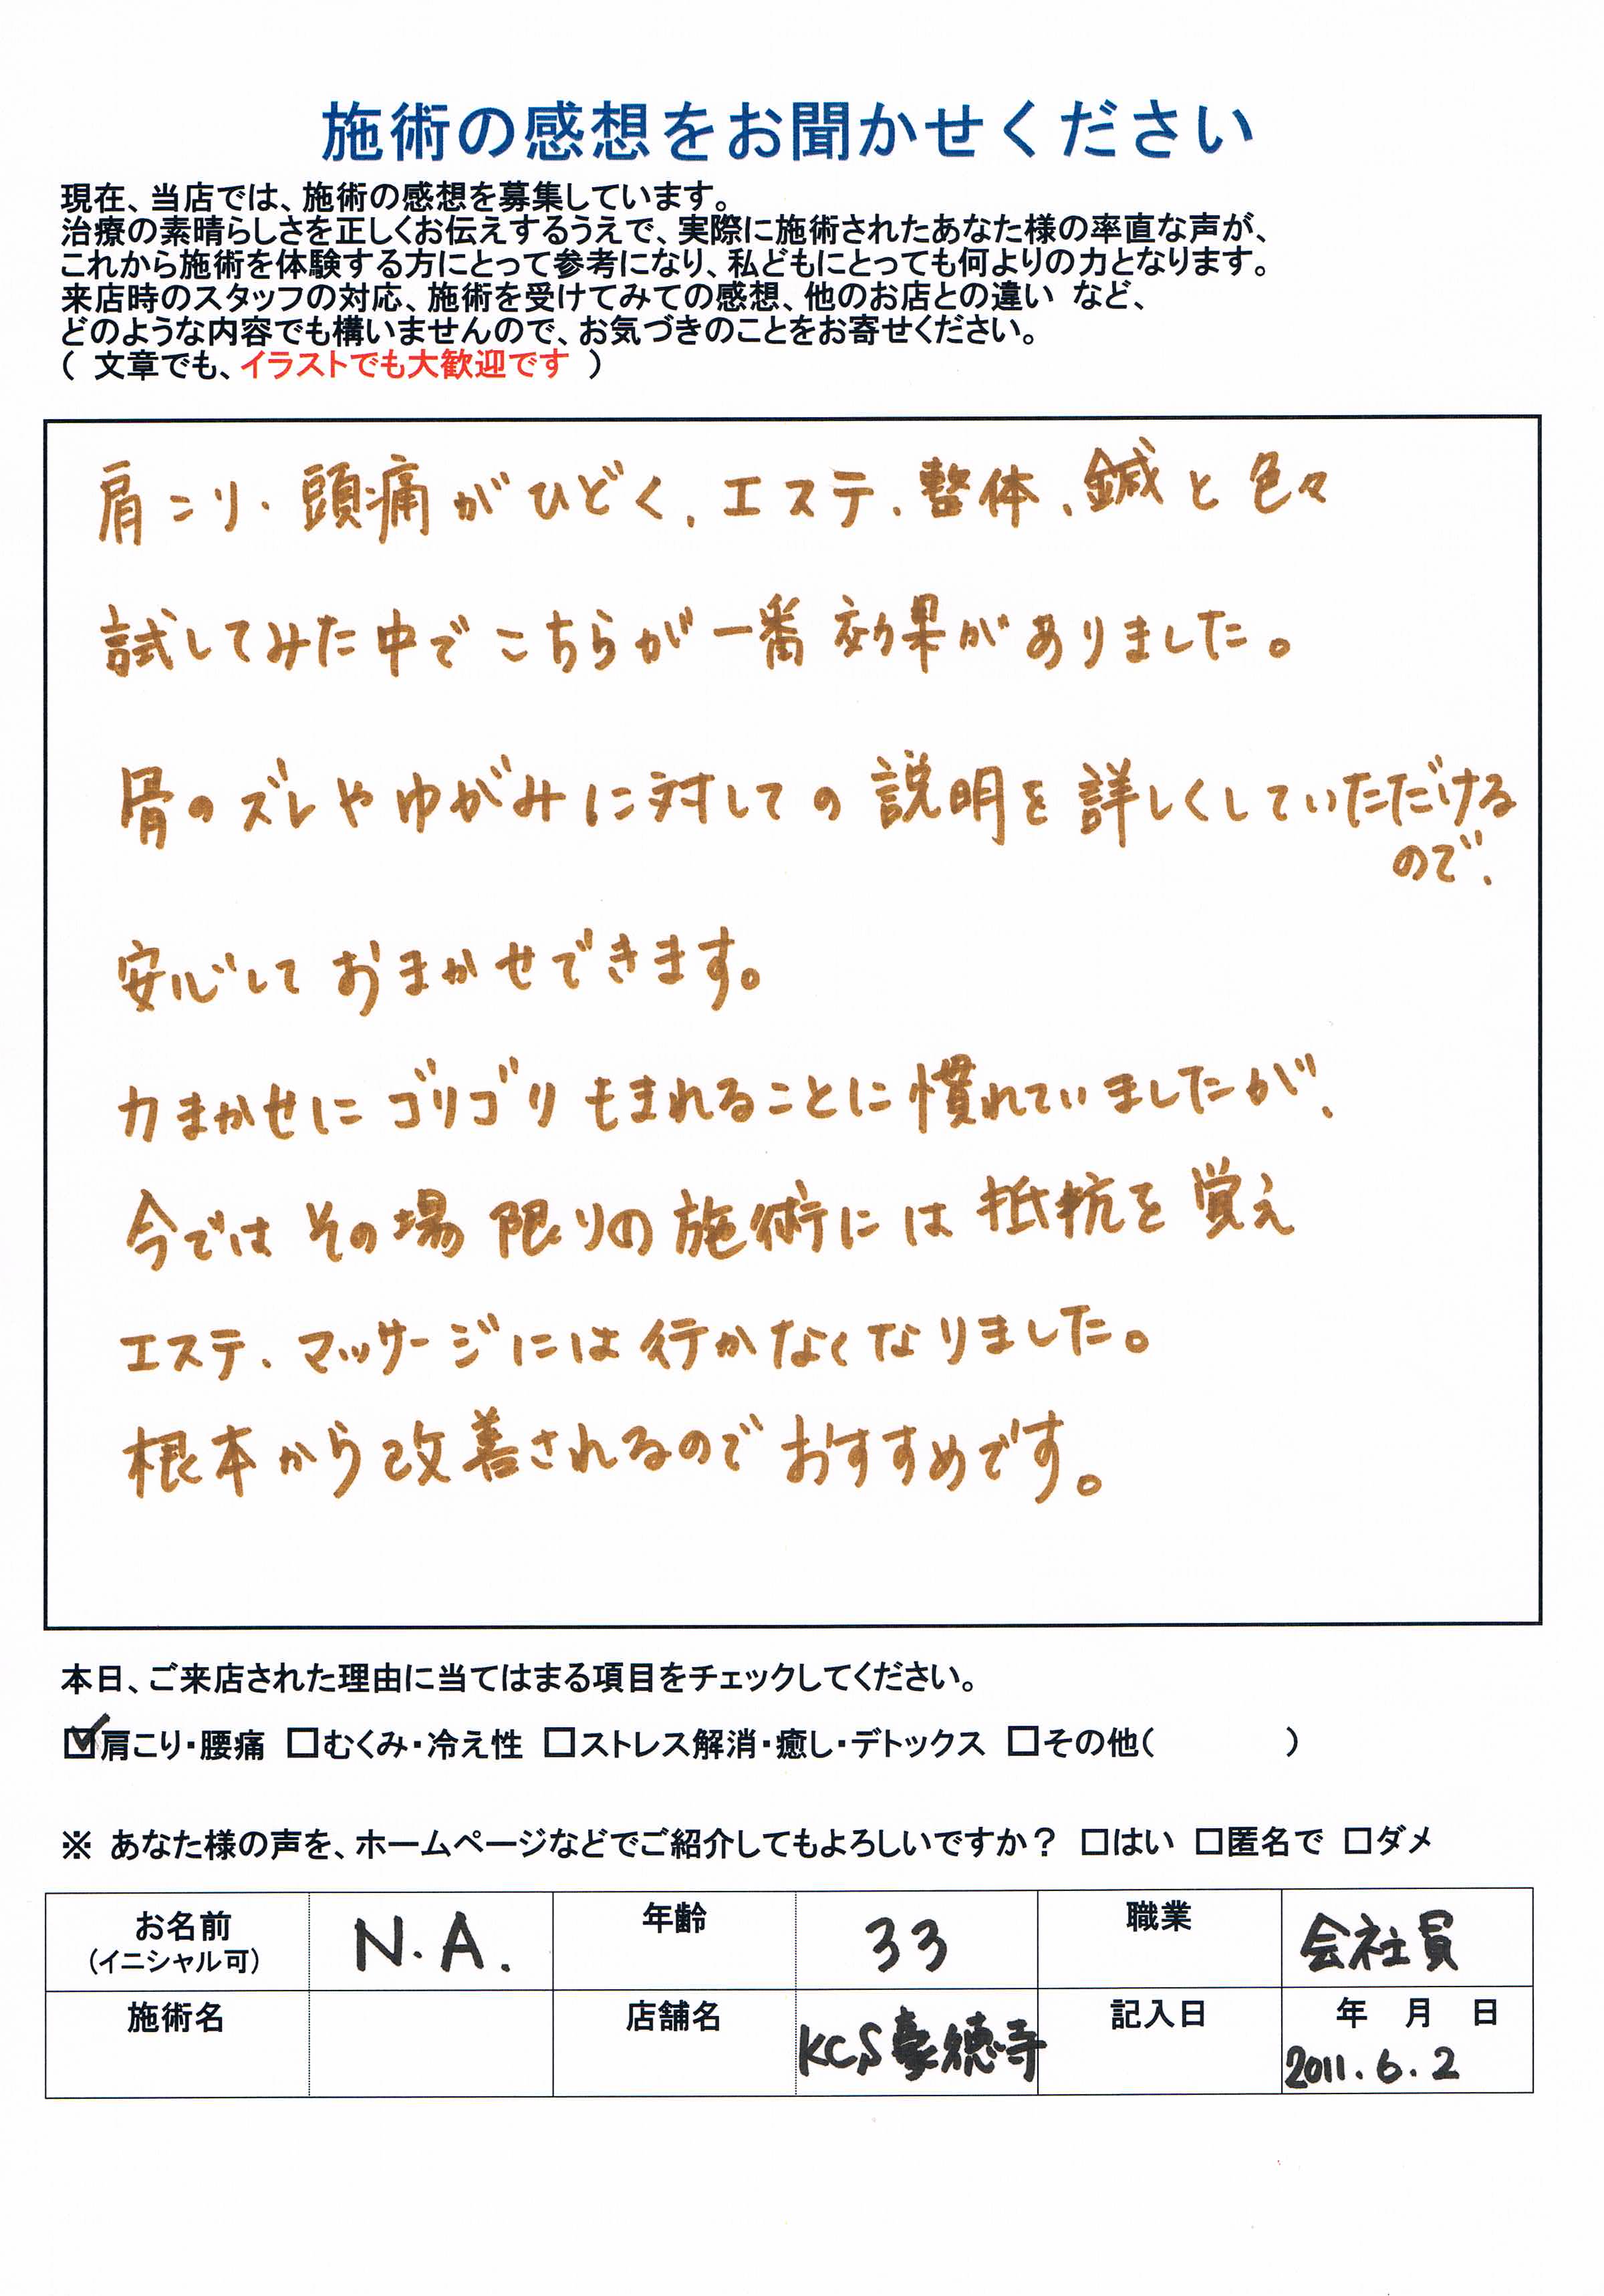 施術の感想をお聞かせください
現在、当店では、施術の感想を募集しています。
治療の素晴らしさを正しくお伝えするうえで、実際に施術されたあなた様の率直な声が、
これから施術を体験する方にとって参考になり、私どもにとっても何よりの力となります。
来店時のスタッフの対応、施術を受けてみての感想、他のお店との違い など、
どのような内容でも構いませんので、お気づきのことをお寄せください。
( 文章でも、イラストでも大歓迎です )
肩こり・頭痛がひどく、エステ、整体、鍼と色々
試してみた中でこちらが一番効果がありました。
骨のズレやゆがみに対しての説明を詳しくしていただける
ので、
安心しておまかせできます。
力まかせにゴリゴリもまれることに慣れていましたが、
今ではその場限りの施術には抵抗を覚え
エステ、マッサージには行かなくなりました。
根本から改善されるのでおすすめです。
本日、ご来店された理由に当てはまる項目をチェックしてください。
☑肩こり・腰痛 □むくみ・冷え性 □ストレス解消・癒し・デトックス □その他( )
※ あなた様の声を、ホームページなどでご紹介してもよろしいですか? □はい □匿名で □ダメ
お名前 N.A. 年齢 33 職業 会社員
(イニシャル可)
施術名 店舗名 KCS豪徳寺 記入日 年 月 日
2011.6.2